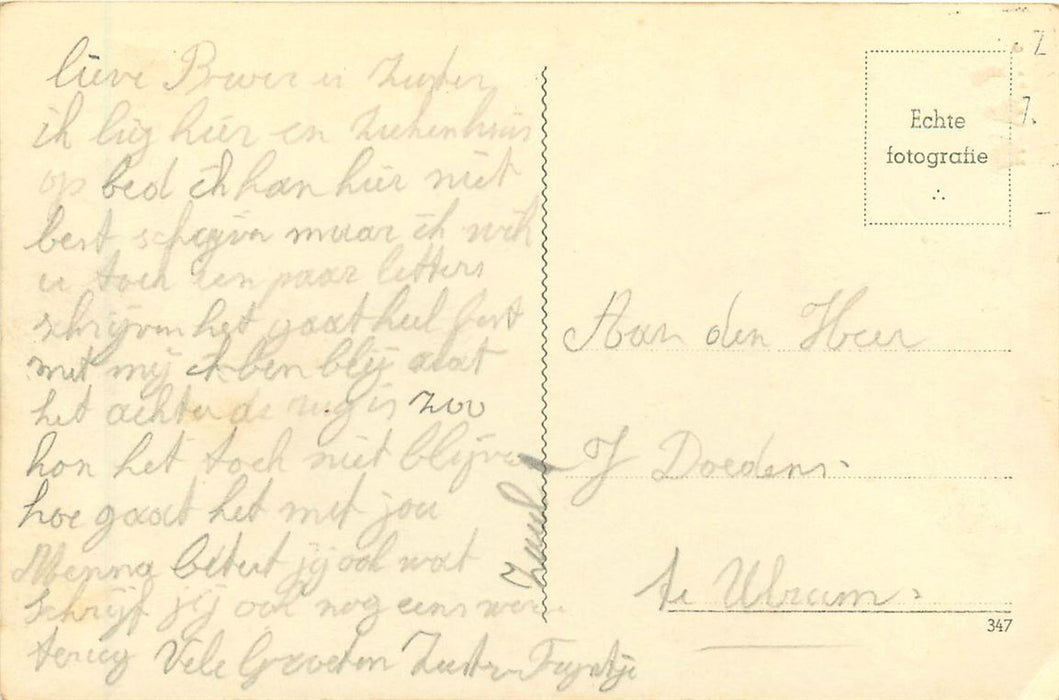 lieve Broer en Zuster
ik lig hier en Ziekenhuis
op bed ik kan hier niet
best schrijven maar ik wil
u toch een paar letters
schrijven het gaat heel best
met mij ik ben blij daat
het achter de rug is zoo
kon het toch niet blijven
hoe gaat het met jou
Menna betert jij ook wat
schrijf jij ook nog eens weer
terug Vele Groeten Zuster Fryntje
Echte
fotografie
Aan den Heer
J Doedens.
te Ulrum.
347